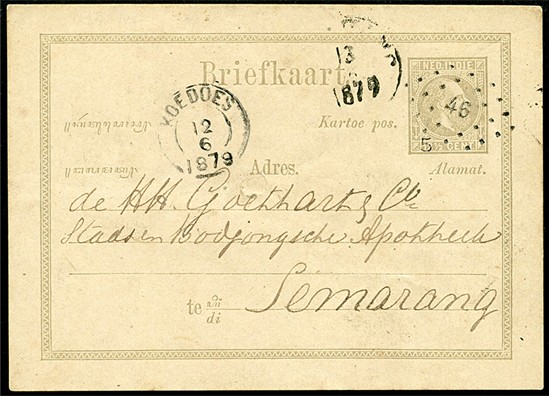 Briefkaart
NED. INDIE
46
5
CENT
13
1879
KOEDOES
12
6
1879
Kartoe pos.
Adres.
Alamat.
de HH. Gothart & Co
Stads en Bodjongsche Apotheek
te di
Semarang